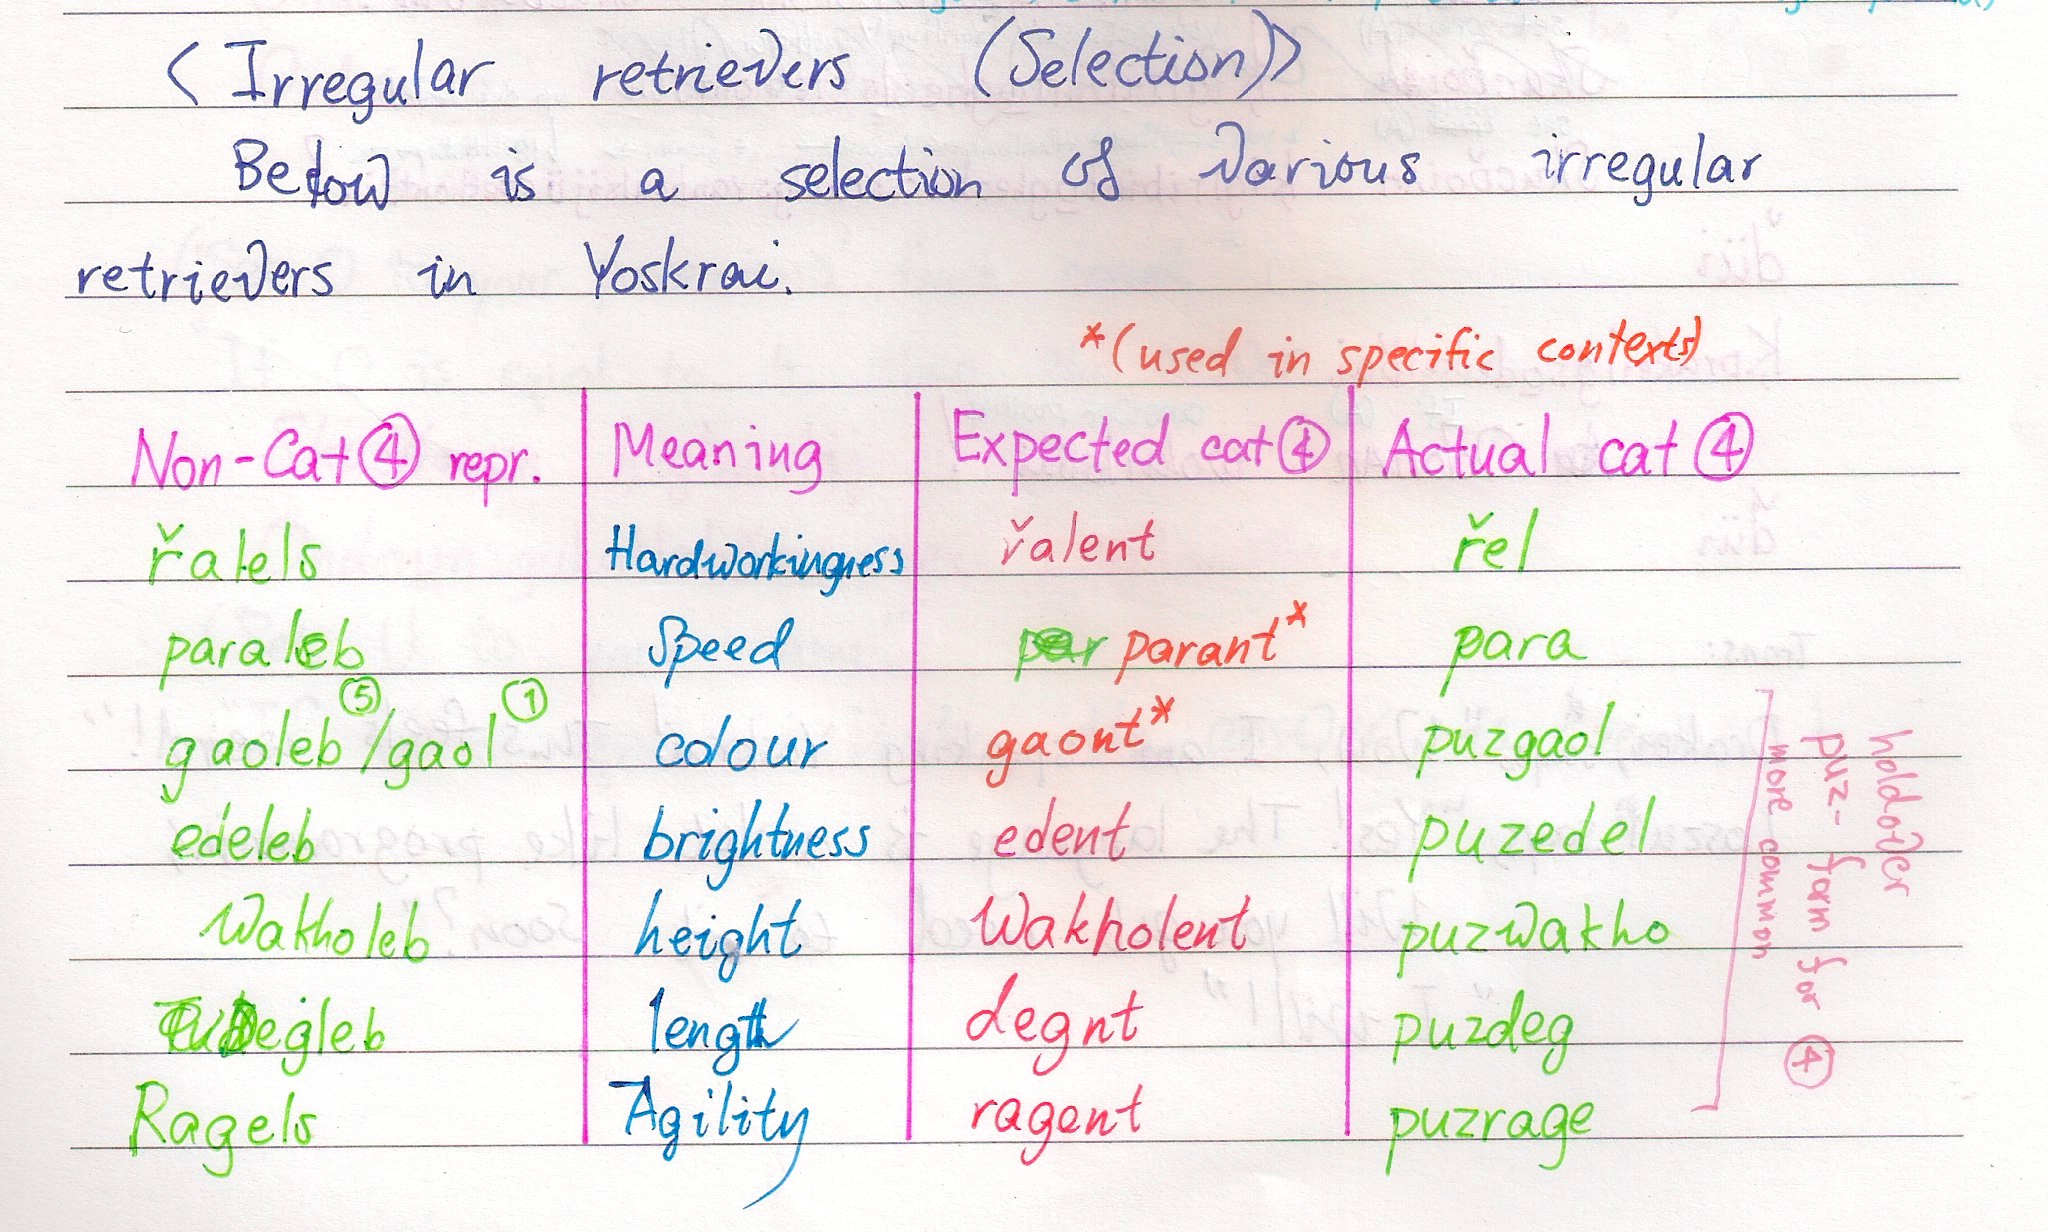 <Irregular retrievers (Selection)>
Below is a selection of various irregular
retrievers in Yoskrai.
*(used in specific contexts)
Non-Cat ④ repr. Meaning Expected cat ④ Actual cat ④
řalels Hardworkingness řalent řel
paraleb Speed parant* para
gaoleb⑤/gaol① colour gaont* puzgaol
edeleb brightness edent puzedel
Wakholeb height Wakholent puzwakho
degleb length degnt puzdeg
Ragels Agility ragent puzrage
holdover
puz- form for ④
more common